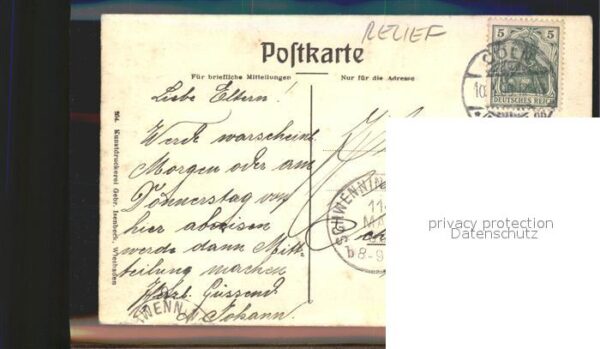 RELIEF
Postkarte
Für briefliche Mitteilungen
Nur für die Adresse
5 5
DEUTSCHES REICH
CÖLN
10.
Liebe Eltern!
Werde warscheinl
Morgen oder am
Donnerstag von
hier abreisen
werde dann Mitt-
teilung machen
Herzl. Grüssend
Johann.
SCHWENNIN
11
MA
8-9
WENN
304 Kunstdruckerei Gebr. Isenbeck, Wiesbaden
privacy protection
Datenschutz